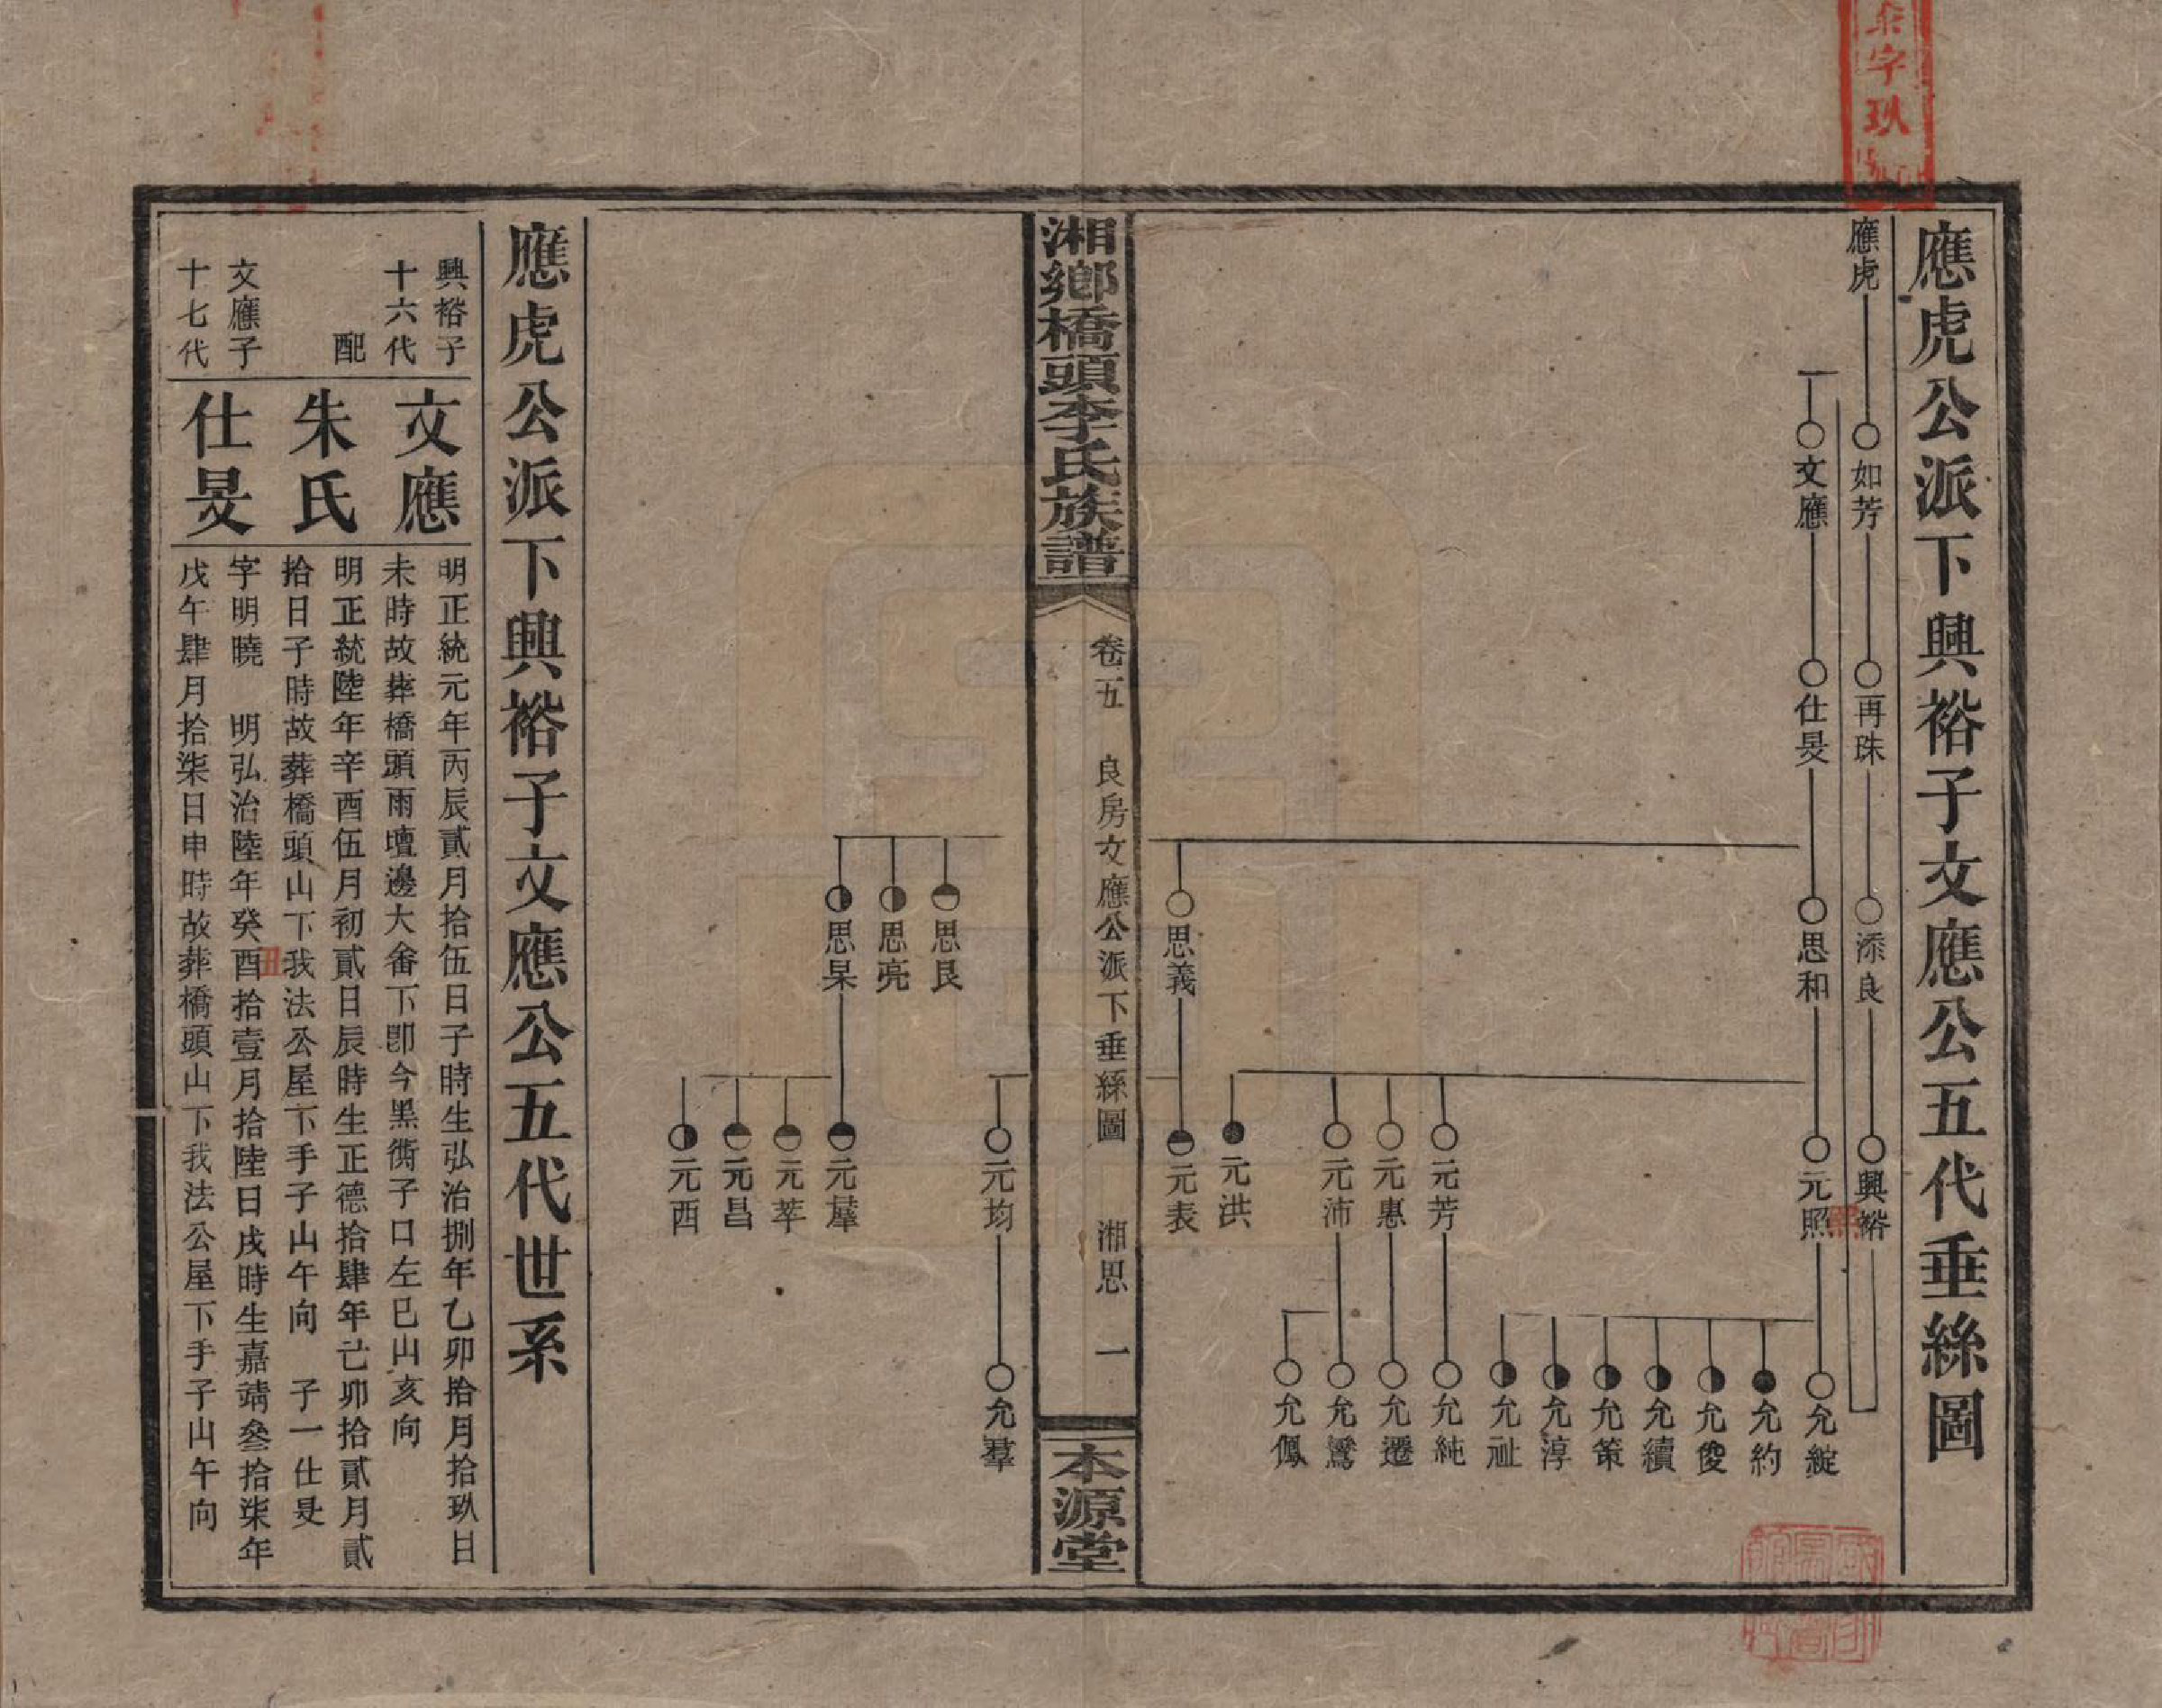 應虎公派下興裕子文應公五代垂絲圖
應虎
如芳
再珠
添良
興裕
文應
仕旻
思和
元照
允綻
允約
允俊
允續
允策
允淳
允祉
元芳
允純
元惠
允遷
元沛
允鸞
允鳳
元洪
思義
元表
元均
允羣
思良
思亮
思杲
元犀
元莘
元昌
元酉
湘鄉橋頭李氏族譜
卷五
良房文應公派下垂絲圖
湘思
一
本源堂
應虎公派下興裕子文應公五代世系
興裕子
十六代
文應
明正統元年丙辰貳月拾伍日子時生弘治捌年乙卯拾月拾玖日
未時故葬橋頭雨壇邊大畬下卽今黑衕子口左巳山亥向
配
朱氏
明正統陸年辛酉伍月初貳日辰時生正德拾肆年己卯拾貳月貳
拾日子時故葬橋頭山下我法公屋下手子山午向 子一仕旻
文應子
十七代
仕旻
字明曉 明弘治陸年癸酉拾壹月拾陸日戌時生嘉靖叄拾柒年
丑
戊午肆月拾柒日申時故葬橋頭山下我法公屋下手子山午向
字玖